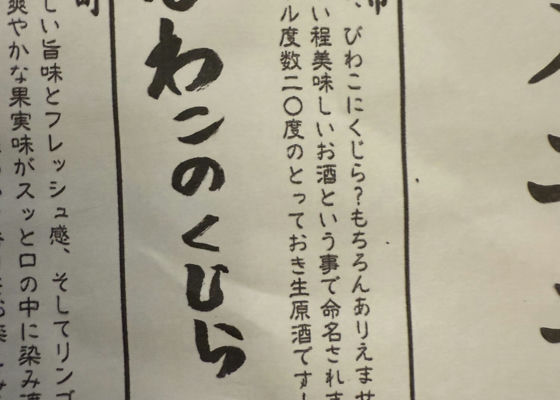 、びわこにくじら?もちろんありえませ
い程美味しいお酒という事で命名されま
ル度数二〇度のとっておき生原酒です!
びわこのくじら
町
しい旨味とフレッシュ感、そしてリンゴ
爽やかな果実味がスッと口の中に染み